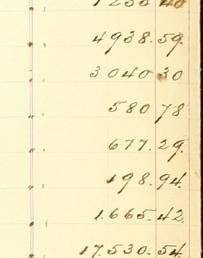 4938.59.
3040 30
580 78
677.29.
198.94.
1.665.42.
17.530.54.